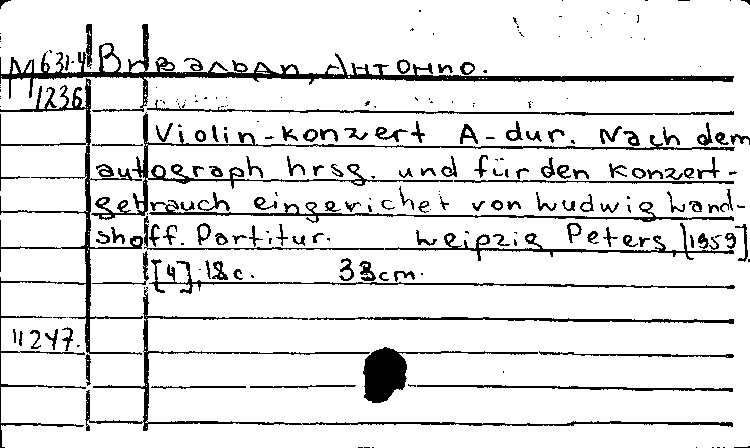 М 631.4 Вивальди, Антонио.
1236
Violin-konzert A-dur. Nach dem
autograph hrsg. und für den konzert-
gebrauch eingerichet von Ludwig Land-
shoff. Partitur. Leipzig, Peters, [1959]
[4], 18 c. 33cm.
11247.